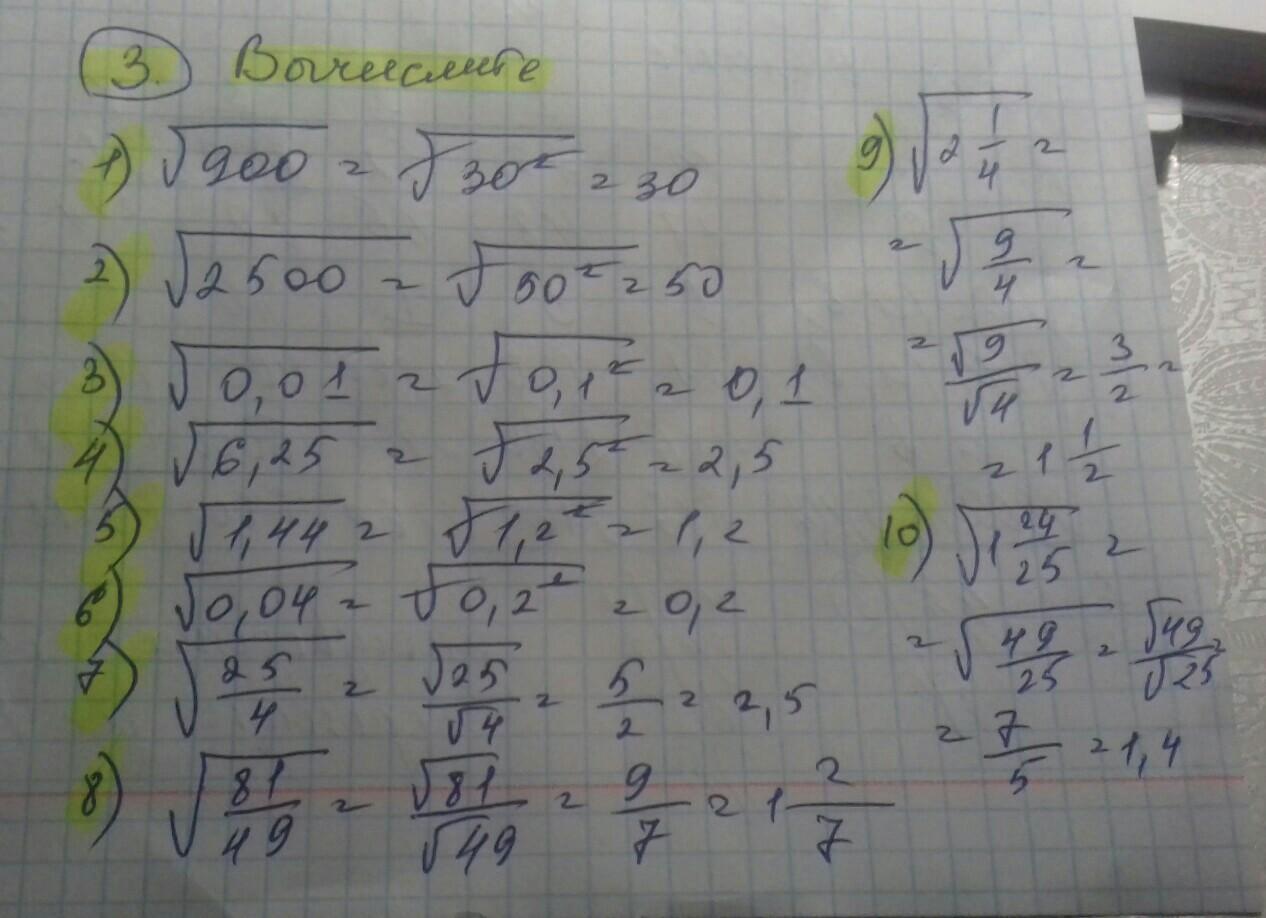 3. Вычислите
1) √900 = √30² = 30
2) √2500 = √50² = 50
3) √0,01 = √0,1² = 0,1
4) √6,25 = √2,5² = 2,5
5) √1,44 = √1,2² = 1,2
6) √0,04 = √0,2² = 0,2
7) √25/4 = √25/√4 = 5/2 = 2,5
8) √81/49 = √81/√49 = 9/7 = 1 2/7
9) √2 1/4 =
= √9/4 =
= √9/√4 = 3/2 =
= 1 1/2
10) √1 24/25 =
= √49/25 = √49/√25 =
= 7/5 = 1,4